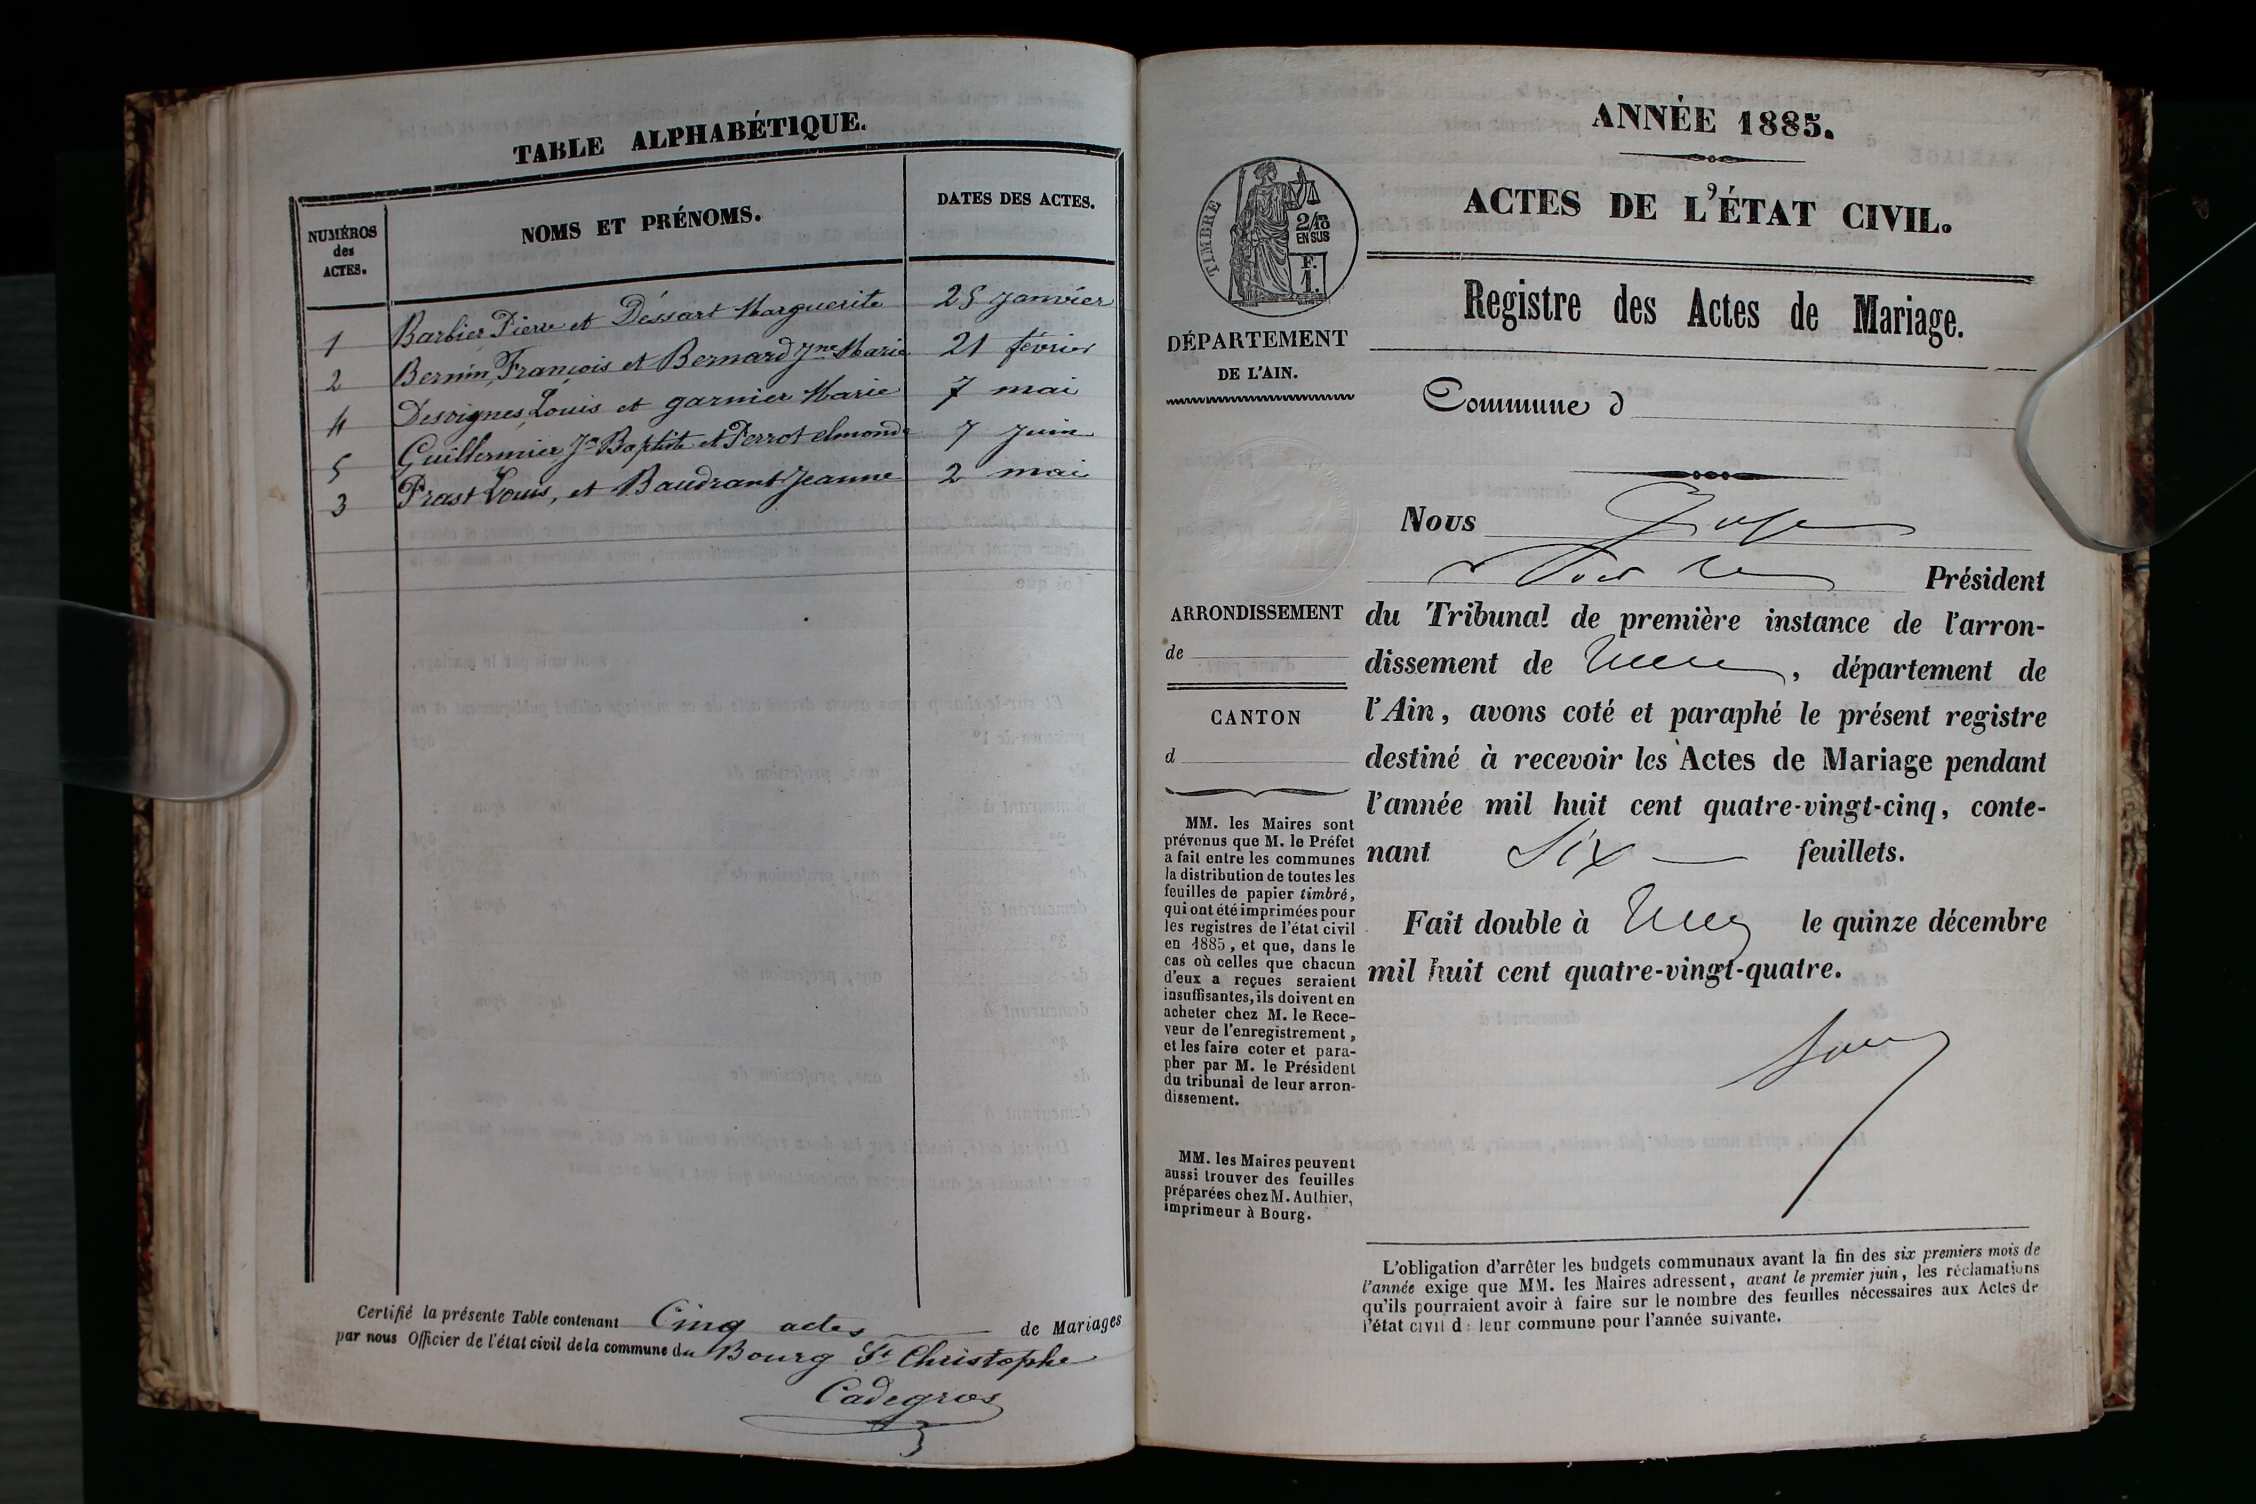 TABLE ALPHABÉTIQUE.
NUMÉROS
des
ACTES.
NOMS ET PRÉNOMS.
DATES DES ACTES.
1 Barbier Pierre et Déssart Marguerite 25 janvier
2 Bernin François et Bernard Jne Marie 21 février
4 Desvignes Louis et garnier Marie 7 mai
5 Guillermier Jn Baptiste et Perrot elmonde 7 juin
3 Prast Louis, et Baudrant Jeanne 2 mai
Certifié la présente Table contenant Cinq actes de Mariages
par nous Officier de l'état civil de la commune du Bourg St Christophe
Cadegros
ANNÉE 1885.
ACTES DE L'ÉTAT CIVIL.
TIMBRE
2/10
EN SUS
F.
1.
Registre des Actes de Mariage.
DÉPARTEMENT
DE L'AIN.
Commune d
Nous
Président
ARRONDISSEMENT
de
CANTON
d
du Tribunal de première instance de l'arron-
dissement de , département de
l'Ain, avons coté et paraphé le présent registre
destiné à recevoir les Actes de Mariage pendant
l'année mil huit cent quatre-vingt-cinq, conte-
nant Six feuillets.
Fait double à le quinze décembre
mil huit cent quatre-vingt-quatre.
MM. les Maires sont
prévenus que M. le Préfet
a fait entre les communes
la distribution de toutes les
feuilles de papier timbré,
qui ont été imprimées pour
les registres de l'état civil
en 1885, et que, dans le
cas où celles que chacun
d'eux a reçues seraient
insuffisantes, ils doivent en
acheter chez M. le Rece-
veur de l'enregistrement,
et les faire coter et para-
pher par M. le Président
du tribunal de leur arron-
dissement.
MM. les Maires peuvent
aussi trouver des feuilles
préparées chez M. Authier,
imprimeur à Bourg.
L'obligation d'arrêter les budgets communaux avant la fin des six premiers mois de
l'année exige que MM. les Maires adressent, avant le premier juin, les réclamations
qu'ils pourraient avoir à faire sur le nombre des feuilles nécessaires aux Actes de
l'état civil d leur commune pour l'année suivante.